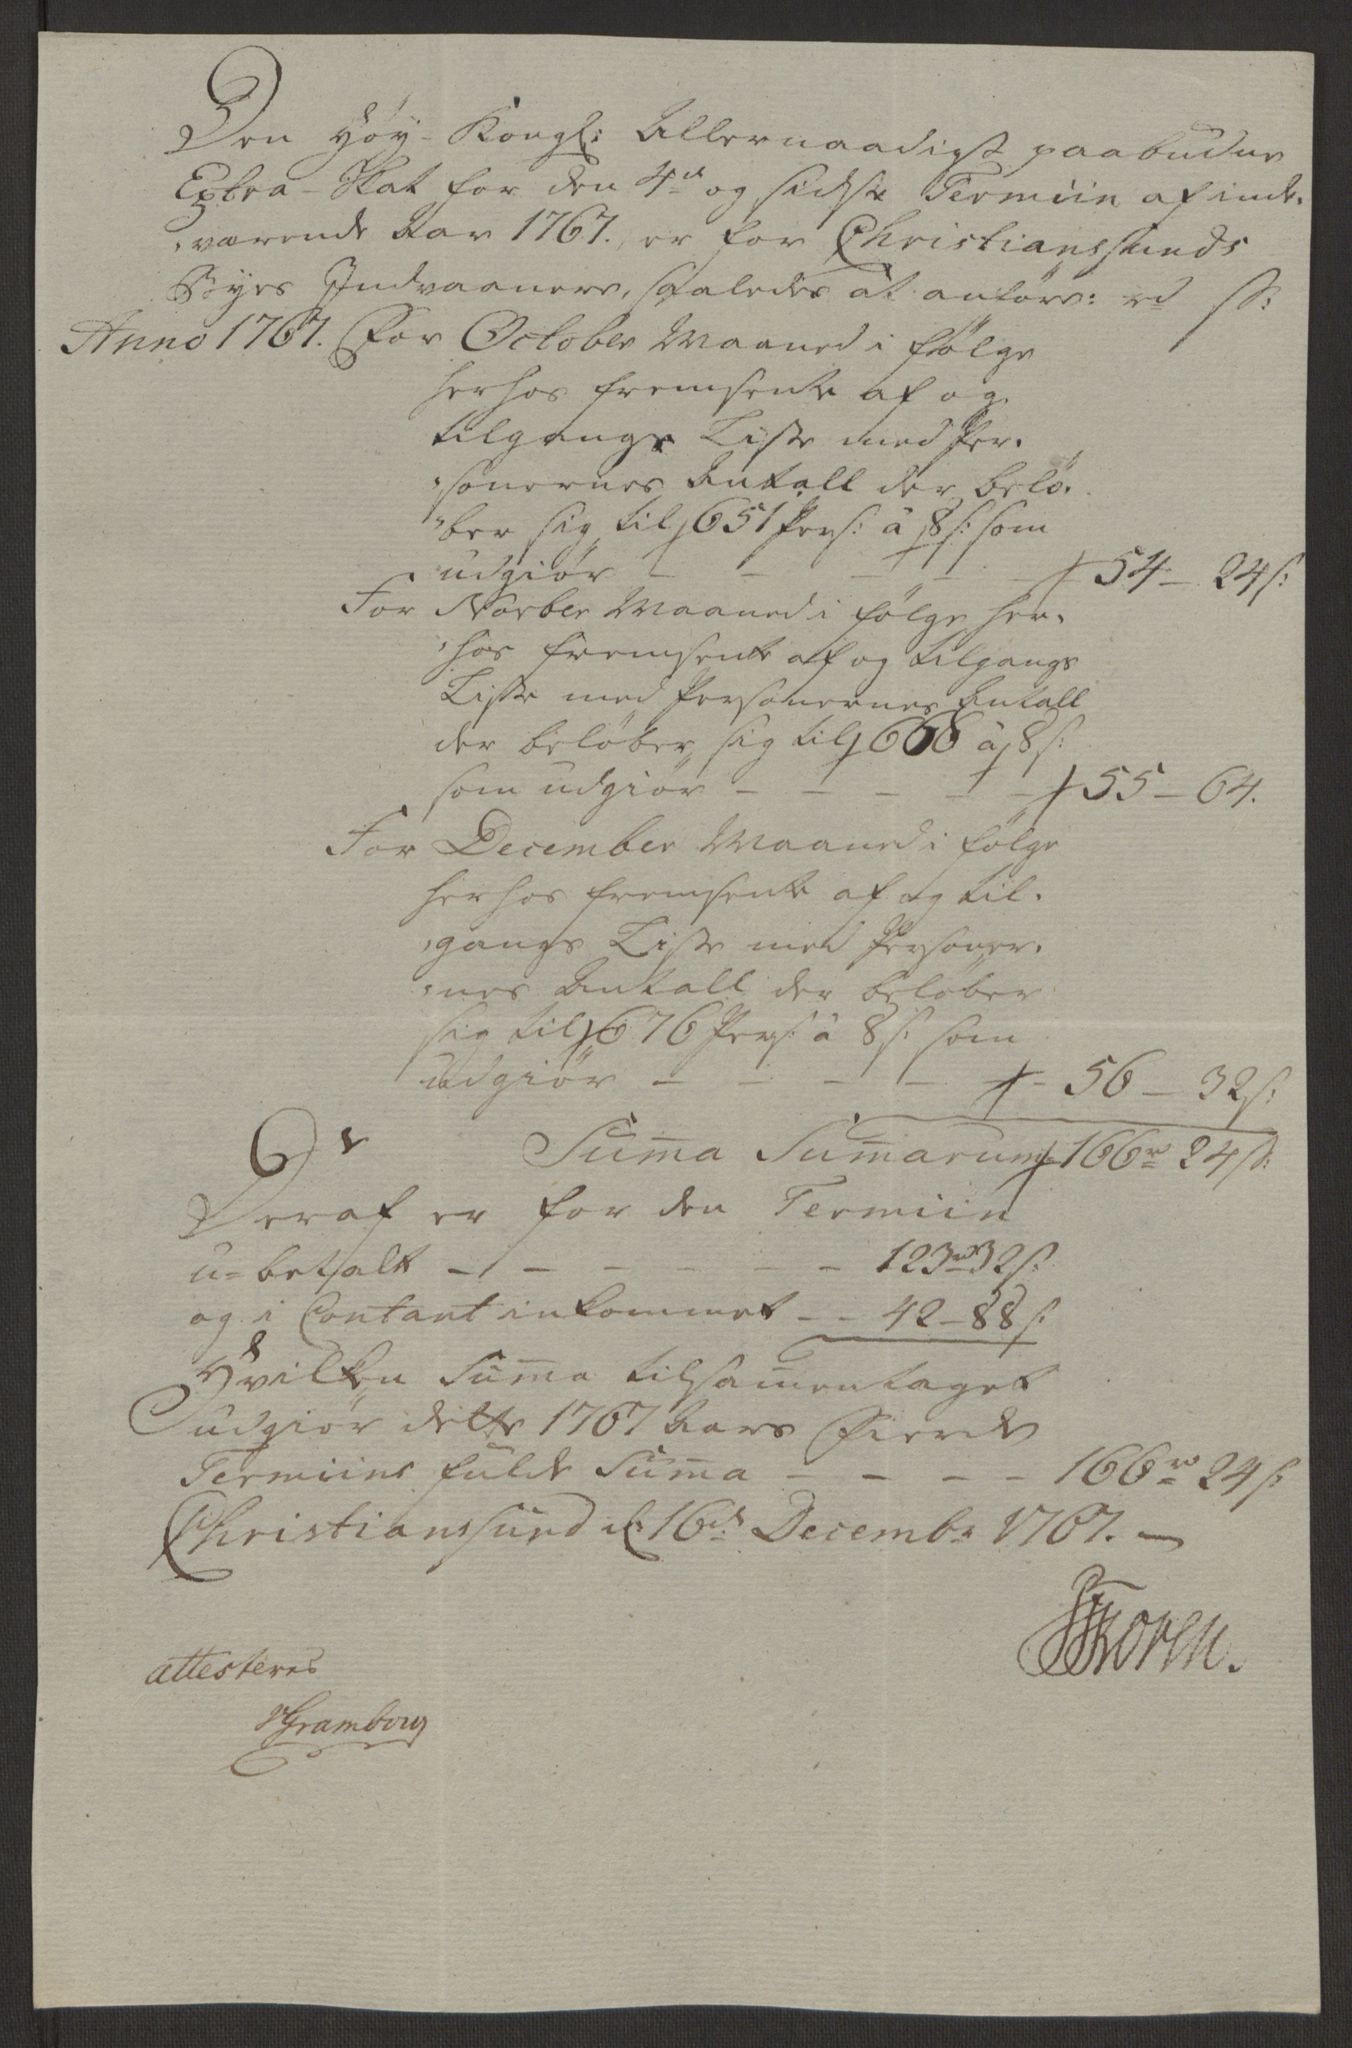 Den Høy-Kongl: Allernaadigst paabudne
Extra-Skat for den 4de og sidste Termiin af inde-
-værende Aar 1767. er for Christianssunds
Byes Indvaanere, saaledes at anføre: rd s:
Anno 1767. For October Maaned i følge
herhos fremsente af og
tilgangs Liste med Per-
-sonernes Antall der belø-
-ber sig til 651 Pers: à 8 s: som
udgiør - - - - - 54 - 24 s:
For Novber Maaned i følge her-
-hos fremsente af og tilgangs
Liste med Personernes Antall
der beløber sig til 668 à 8 s:
som udgiør - - - - - 55 - 64.
For December Maaned i følge
herhos fremsente af og til-
-gangs Liste med Personer-
-nes Antall der beløber
sig til 676 Pers: à 8 s: som
udgiør - - - - - 56 - 32 s:
Sum̅a Sum̅arum 166 rd 24 s:
Deraf er for den Termiin
u-betalt - - - - - - 123 rd 32 s:
og i Contant inkommet - - 42 - 88 s:
Hvilken Sum̅a tilsam̅entaget
udgiør dette 1767 Aars Fierde
Termiins fulde Sum̅a - - - - 166 rd 24 s:
Christianssund d: 16de Decembr 1767. -
Koren.
attesteres
Grambow